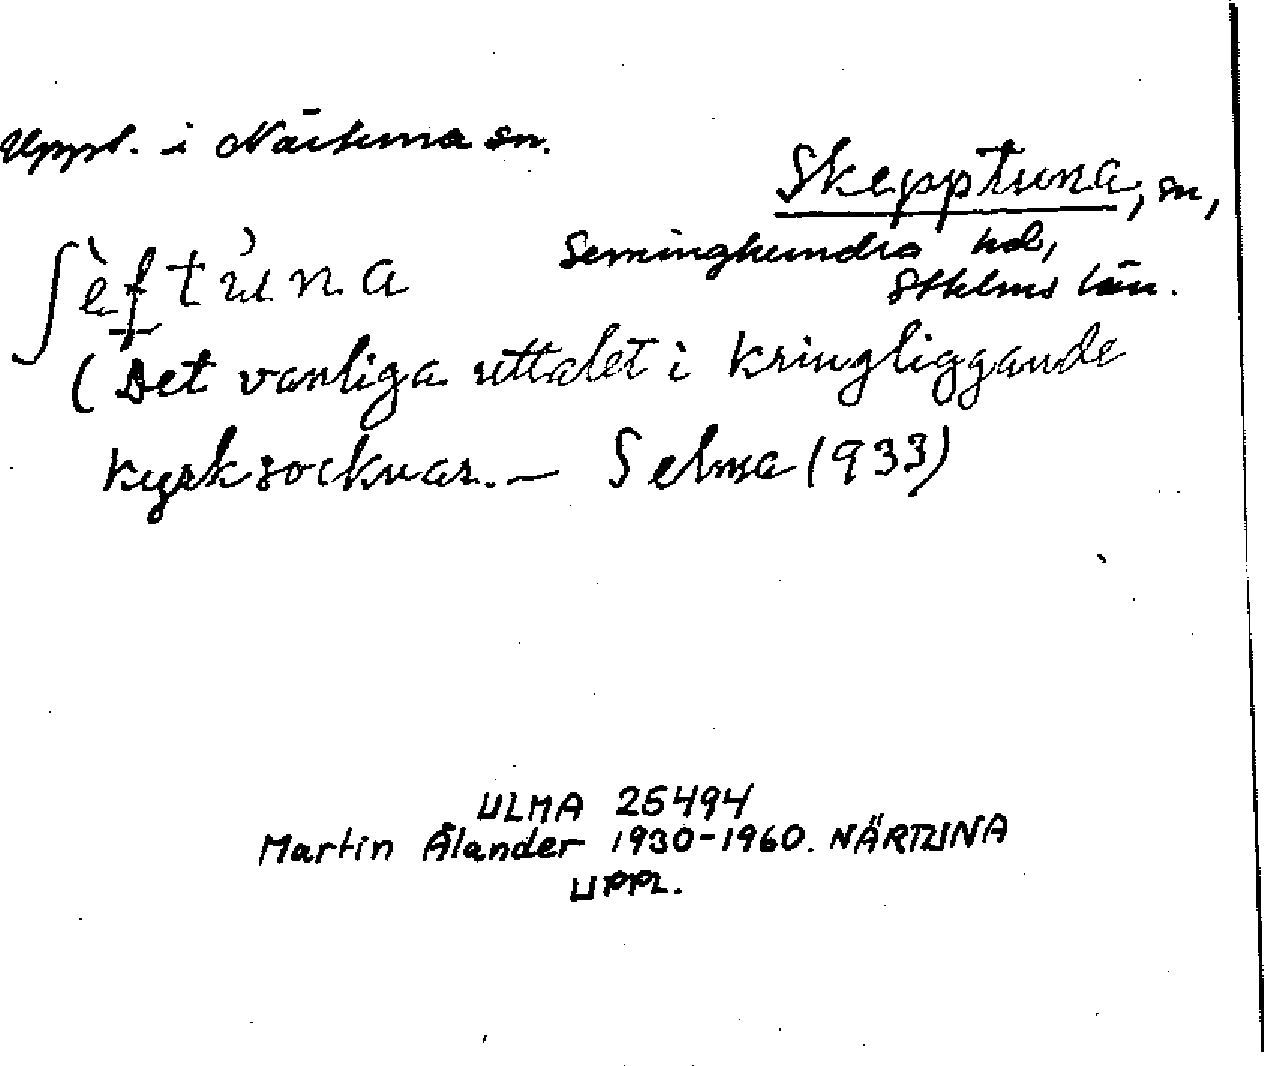 Uppl. i Närtuna sn.
Skepptuna, sn,
Seminghundra hd,
Sthlms län.
ʃèftùna
(Det vanliga uttalet i kringliggande
kyrksocknar. — Selma (933)
ULMA 25494
Martin Ålander 1930-1960. NÄRTUNA
UPPL.